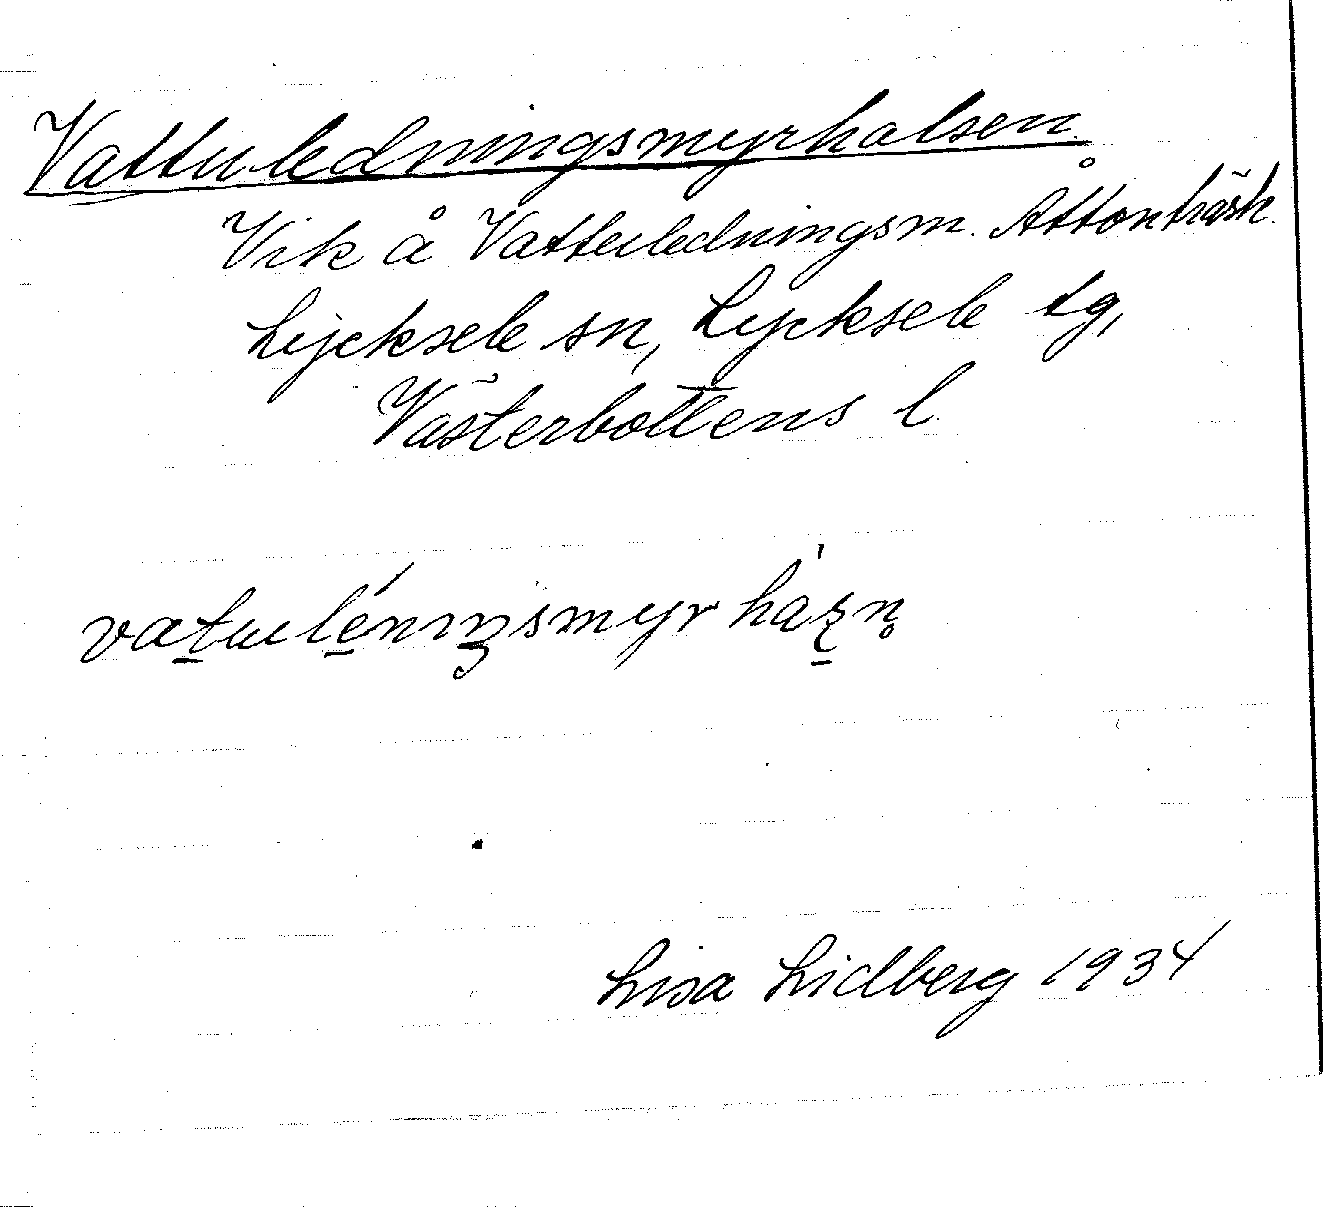 Vattuledningsmyrhalsen
Vik å Vattuledningsm. Åttonträsk.
Lycksele sn, Lycksele tg,
Västerbottens l.
Lisa Lidberg 1934